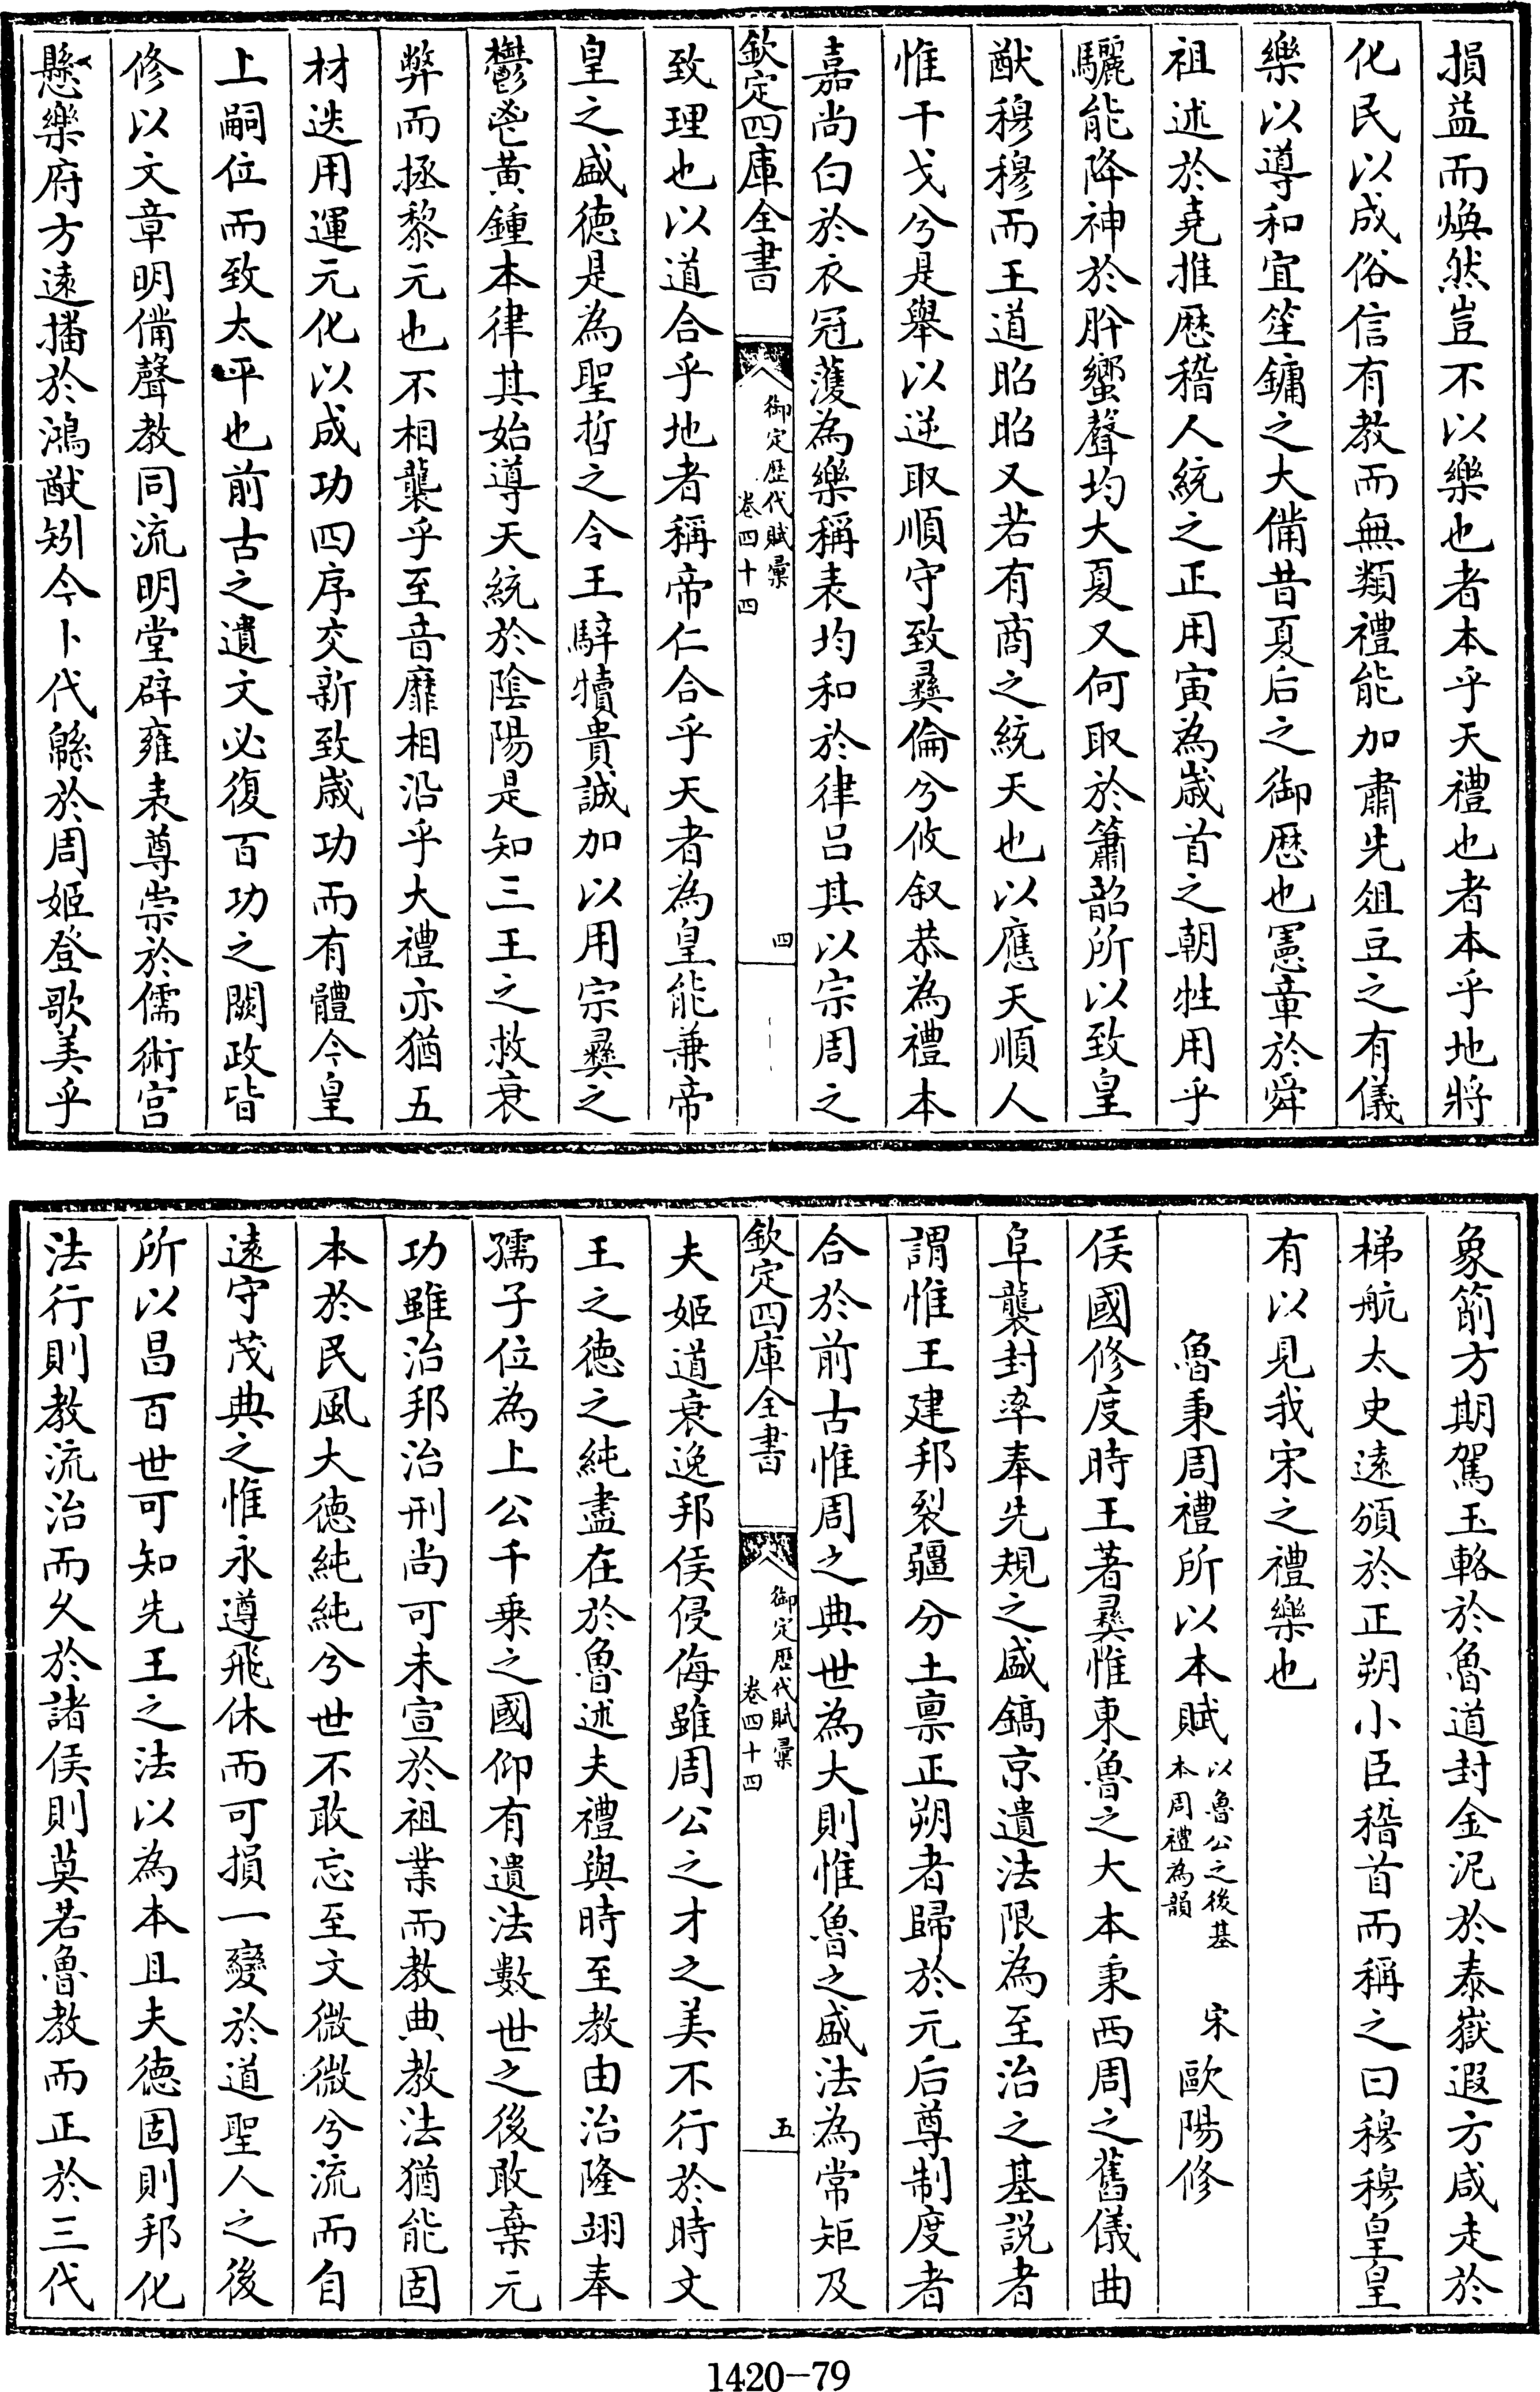 損益而煥然豈不以樂也者本乎天禮也者本乎地將
化民以成俗信有教而無類禮能加肅先俎豆之有儀
樂以導和宜笙鏞之大備昔夏后之御歴也憲章於舜
祖述於堯推歴稽人統之正用寅為歳首之朝牲用乎
驪能降神於肸蠁聲均大夏又何取於簫韶所以致皇
猷穆穆而王道昭昭又若有商之統天也以應天順人
惟干戈兮是舉以逆取順守致彛倫兮攸叙恭為禮本
嘉尚白於衣冠濩為樂稱表均和於律呂其以宗周之
欽定四庫全書
御定歴代賦彙
卷四十四
四
致理也以道合乎地者稱帝仁合乎天者為皇能兼帝
皇之盛徳是為聖哲之令王騂犢貴誠加以用宗彛之
鬱鬯黄鍾本律其始導天統於隂陽是知三王之救衰
弊而拯黎元也不相襲乎至音靡相沿乎大禮亦猶五
材迭用運元化以成功四序交新致歳功而有體今皇
上嗣位而致太平也前古之遺文必復百功之闕政皆
修以文章明備聲教同流明堂辟雍表尊崇於儒術宫
懸樂府方逺播於鴻猷矧今卜代緜於周姬登歌美乎
象箾方期駕玉輅於魯道封金泥於泰嶽遐方咸走於
梯航太史逺頒於正朔小臣稽首而稱之曰穆穆皇皇
有以見我宋之禮樂也
魯秉周禮所以本賦
以魯公之後基
本周禮為韻
宋 歐陽修
侯國修度時王著彛惟東魯之大本秉西周之舊儀曲
阜襲封率奉先規之盛鎬京遺法限為至治之基説者
謂惟王建邦裂疆分土禀正朔者歸於元后尊制度者
合於前古惟周之典世為大則惟魯之盛法為常矩及
欽定四庫全書
御定歴代賦彙
卷四十四
五
夫姬道衰逸邦侯侵侮雖周公之才之美不行於時文
王之徳之純盡在於魯述夫禮與時至教由治隆翊奉
孺子位為上公千乗之國仰有遺法數世之後敢棄元
功雖治邦治刑尚可未宣於祖業而教典教法猶能固
本於民風大徳純純兮世不敢忘至文微微兮流而自
逺守茂典之惟永遵飛休而可損一變於道聖人之後
所以昌百世可知先王之法以為本且夫徳固則邦化
法行則教流治而久於諸侯則莫若魯教而正於三代
1420-79